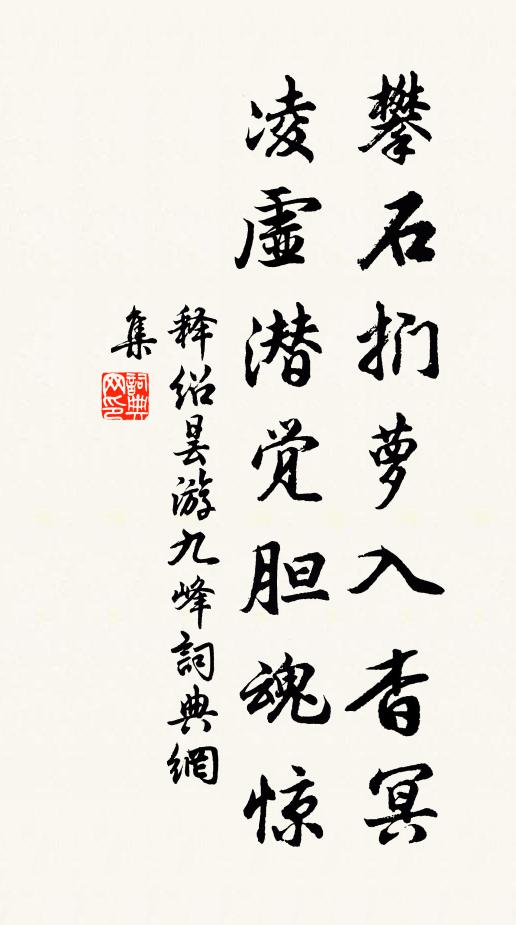 攀石扪萝入杳冥
凌虚潜觉胆魂惊
释绍昙游九峰詞典網
集
詞典网印